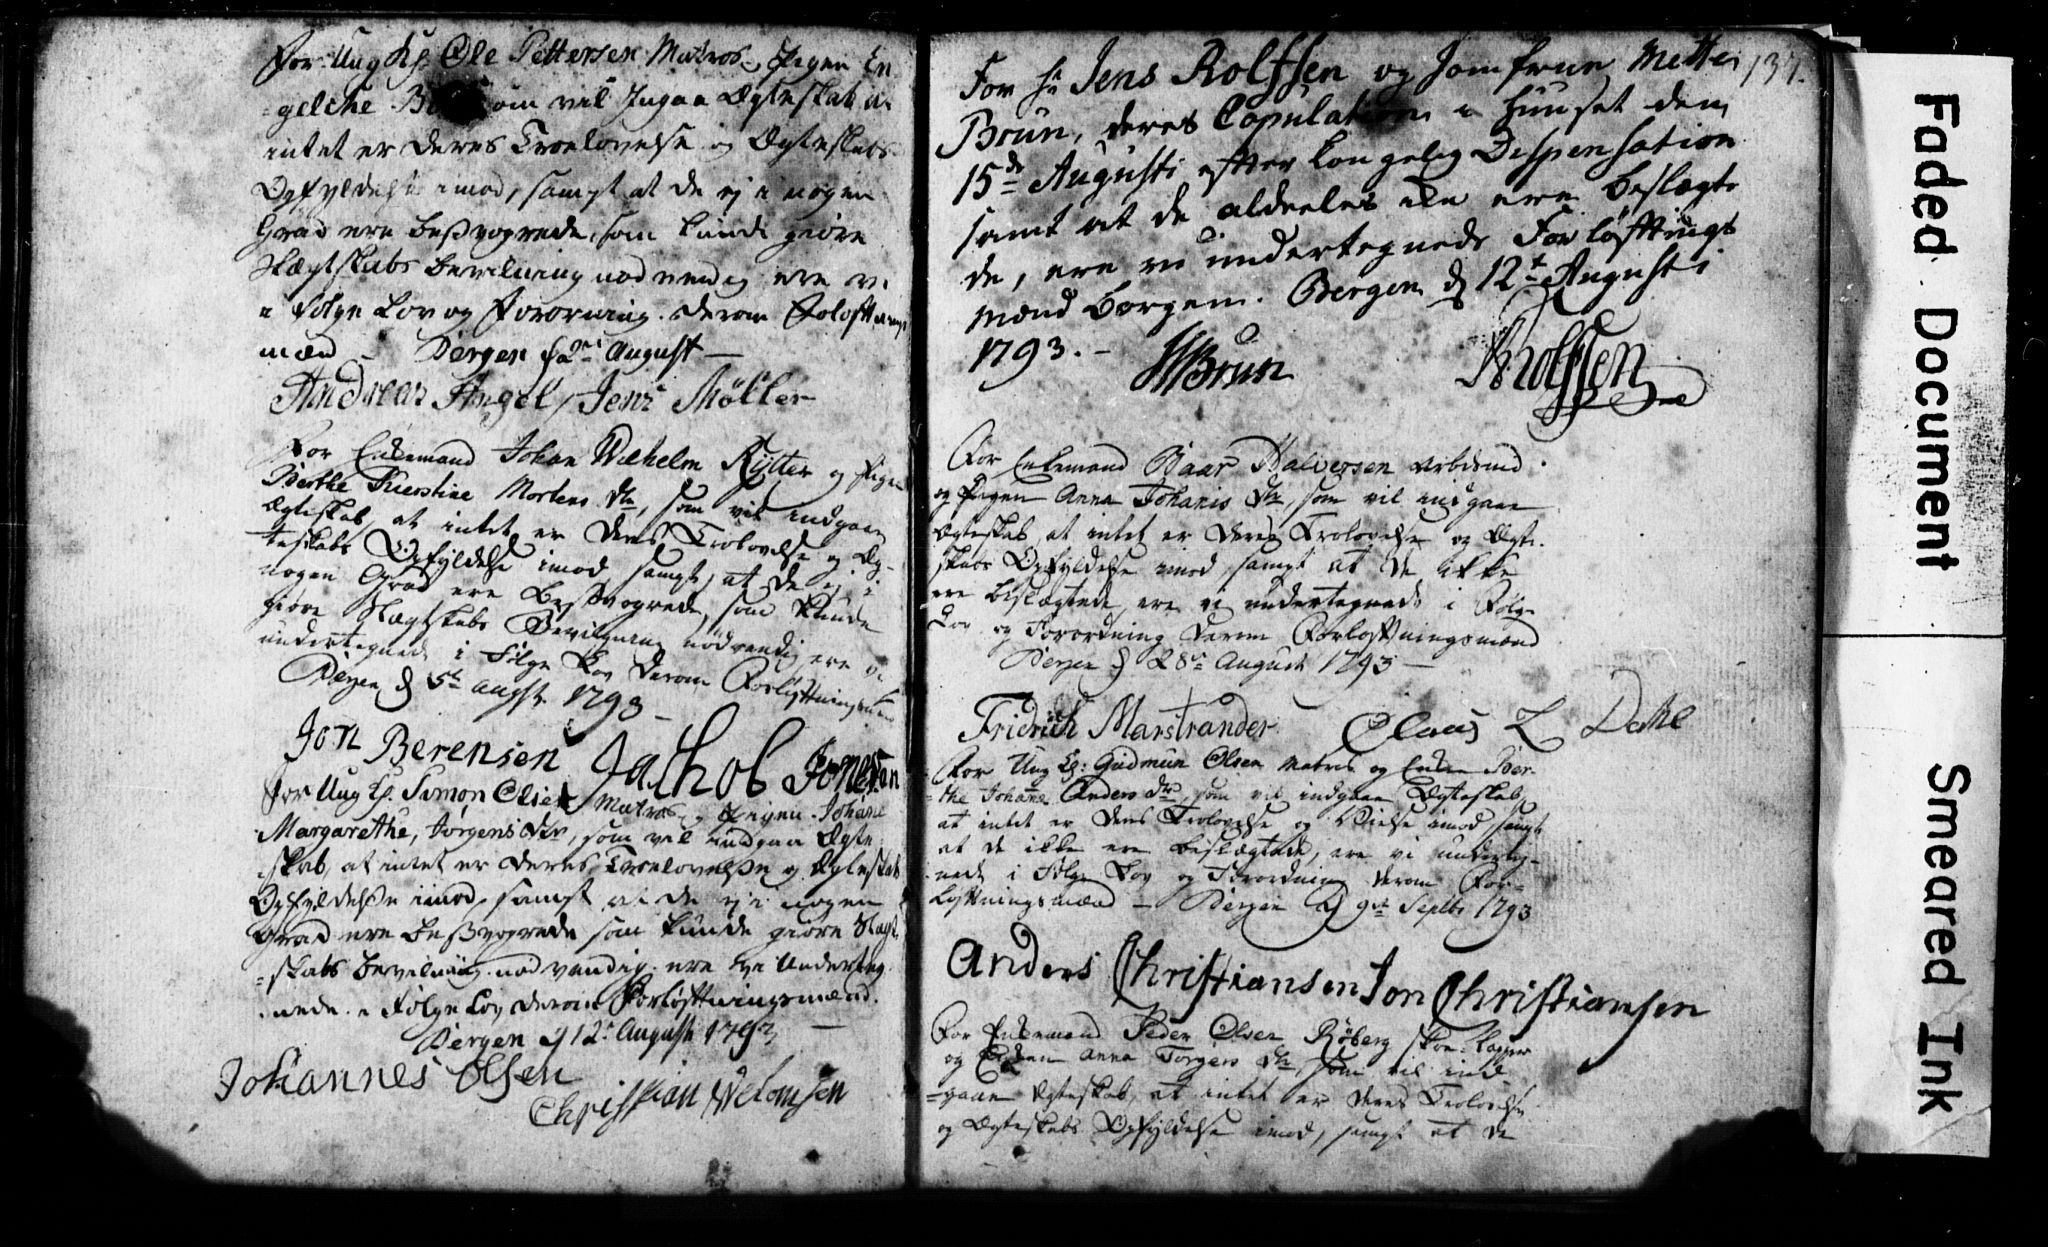 For Ung K. Ole Pettersen Matros og Pigen En
gelche som vil Ingaa Ægteskab at
intet er deres Troelovelse og Ægteskabs
Opfyldelse imod, sampt at de ej i nogen
Grad ere Beßvogrede, som kunde giøre
Slægtskabs Bevilning nødvendig ere vi
i Følge Lov og Forordning derom
mænd Bergen August
Andreas Angel Jens Møller
For Enkemand Johan Wilhelm Rytter og Pigen
Berthe Kierstine Mortens Dtr, som vil indgaa
Ægteskab, at intet er deres Trolovelse og Æg-
teskabs Opfyldelse imod sampt, at de ej i
nogen Grad ere Beßvogrede, som kunde
giøre Slægtskabs Bevilgning nødvendig, ere vi
undertegnede i Følge Lov derom Forløftningsmænd
Bergen d 5te Augst. 1793
Jon Berensen Jachob Jonesen
For Ung K. Simon Olsen Matros og Pigen Johane
Margarethe, Jørgens Dtr, som vil indgaa Ægte
skab, at intet er deres Troelovelse og Ægteskab
Opfyldelse imod, sampt at de ej i nogen
Grad ere Beßvogrede som kunde giøre Slægt
=skabs Bevilning nødvendig, ere vi Underteg
nede i Følge Lov derom Forløftningsmænd.
Bergen d 12 August 1793
Johannes Olsen
Christian
137.
For Hr Jens Rolfsen og Jomfrue Mette
Brun, deres Copulation i Huuset den
15de Augusti efter Kongelig Dispensation
samt at de aldeeles ere Beslægte
de, ere vi undertegnede Forløftnings
Mænd Borgen. Bergen d 12t Augusti
1793.
Brun Rolfsen
For Enkemand Baar Halversen Arbdsmd
og Pigen Anna Johanis Dtr, som vil indgaae
Ægteskab, at intet er deres Trolovelse og Ægte-
skabs Opfyldelse imod, sampt at de ikke
ere beslægtede, ere vi undertegnede i Følge
Lov og Forordning derom Forløftningsmænd
Bergen d 28 August 1793
Fridrich Marstrander Claus Dahl
For Ung K: Gudmun Olsen Matros og Enken Ber-
the Johanne Anders Dtr, som vil indgaae Ægteskab,
at intet er deres Trolovelse og Vielse imod, sampt
at de ikke ere beslægtede, ere vi underteg-
nede i Følge Lov og Forordning derom For-
løftningsmænd — Bergen d 9de Septbr 1793
Anders Christiansen Jon Christiansen
For Enkemand Peder Olsen Røberg Skoe-lapper
og Enken Anna Torgers Dtr, som vil ind
=gaae Ægteskab, at intet er deres Trolovelse
og Ægteskabs Opfyldelse imod, sampt at de
Faded Document
Smeared Ink